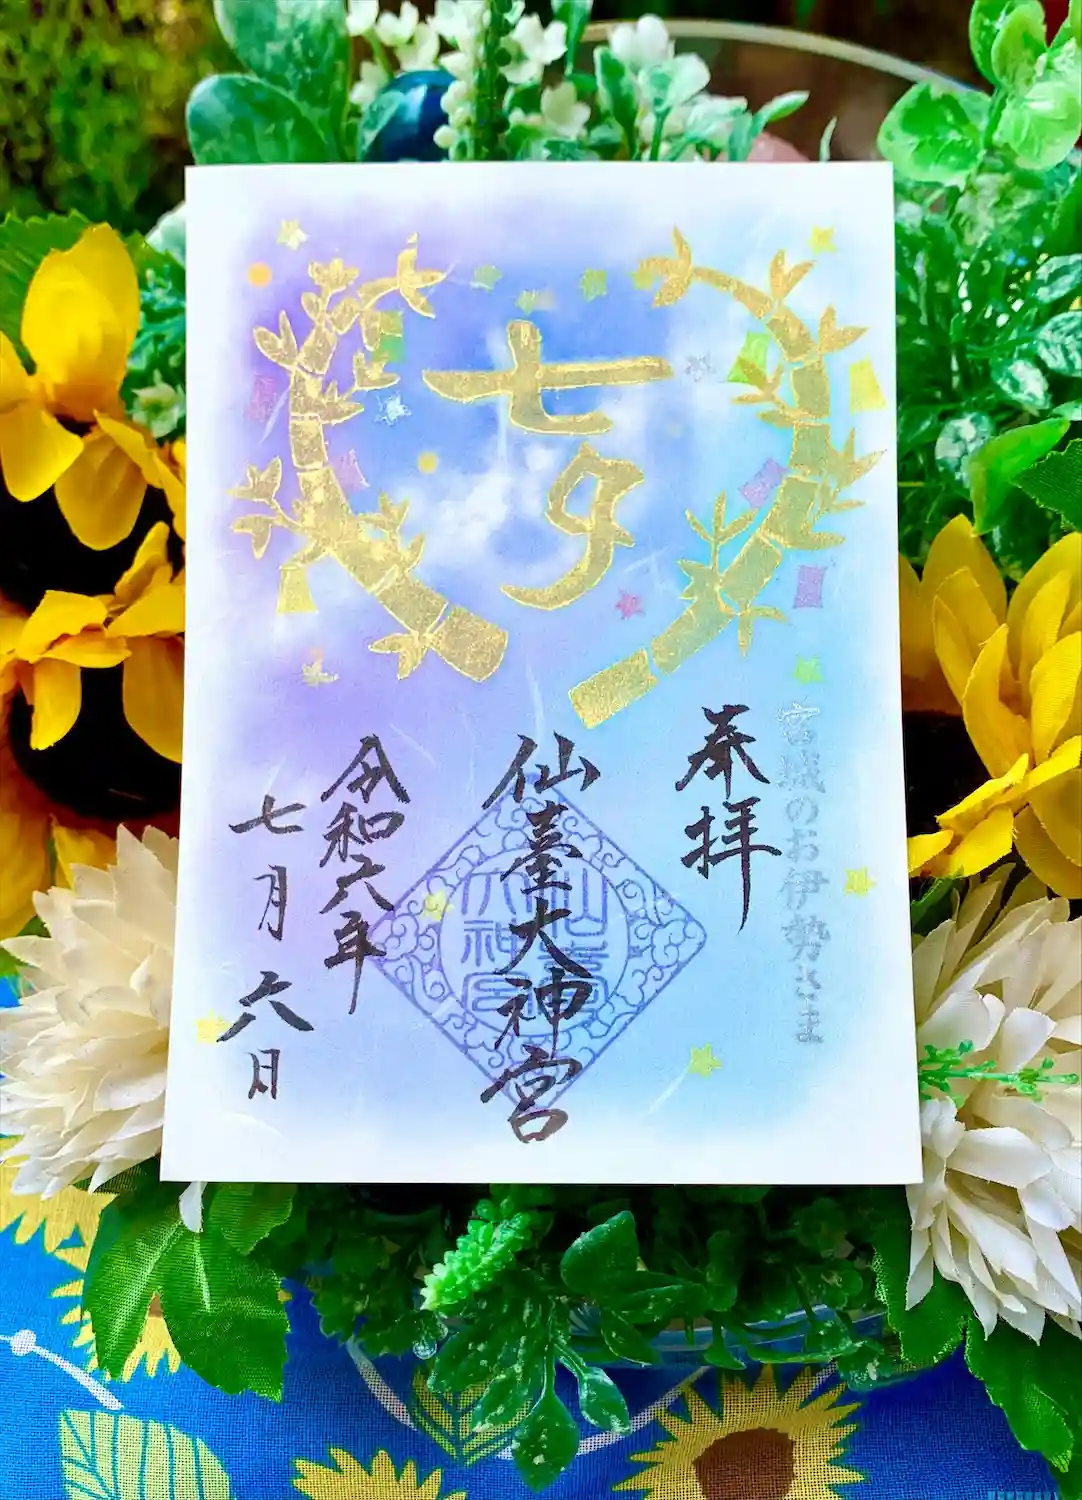 七夕
宮城のお伊勢さま
奉拝
仙臺大神宮
仙臺
大神宮
令和六年
七月六日